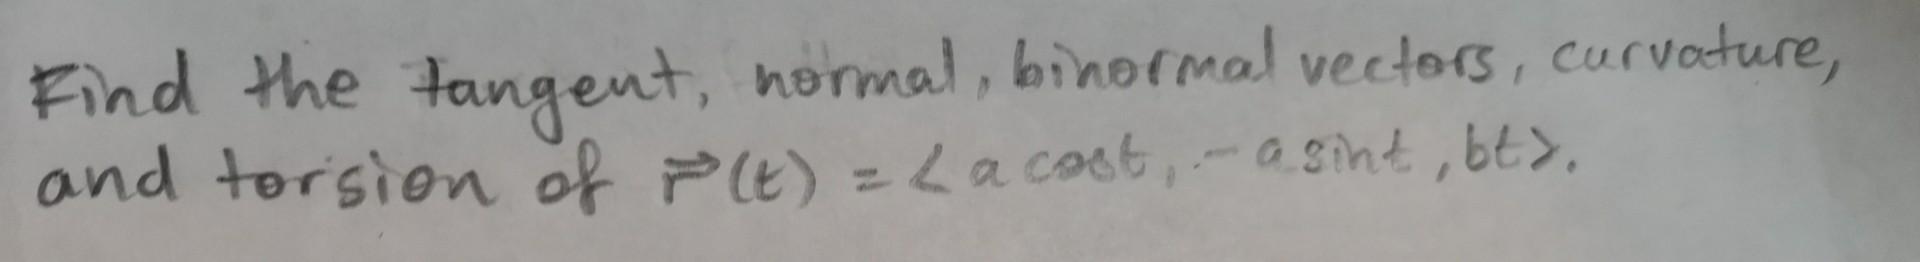 Find the tangent, normal, binormal vectors, curvature,
and torsion of r⃗(t) = <a cost, -a sint, bt>.